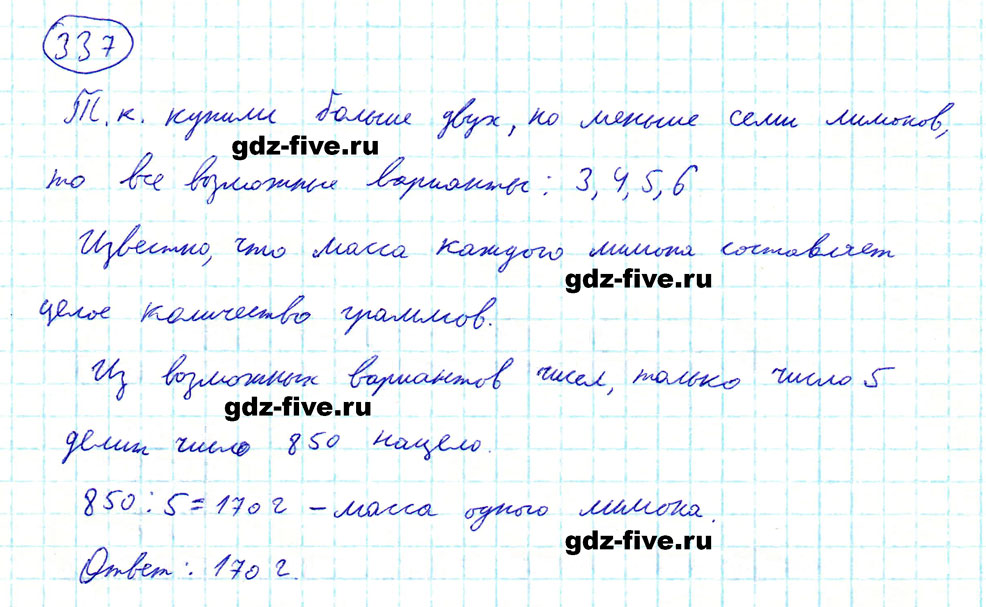 337
Т.к. купили больше двух, но меньше семи лимонов,
gdz-five.ru
то все возможные варианты: 3, 4, 5, 6
Известно, что масса каждого лимона составляет
gdz-five.ru
целое количество граммов.
Из возможных вариантов чисел, только число 5
gdz-five.ru
делит число 850 нацело.
850 : 5 = 170 г – масса одного лимона.
gdz-five.ru
Ответ: 170 г.